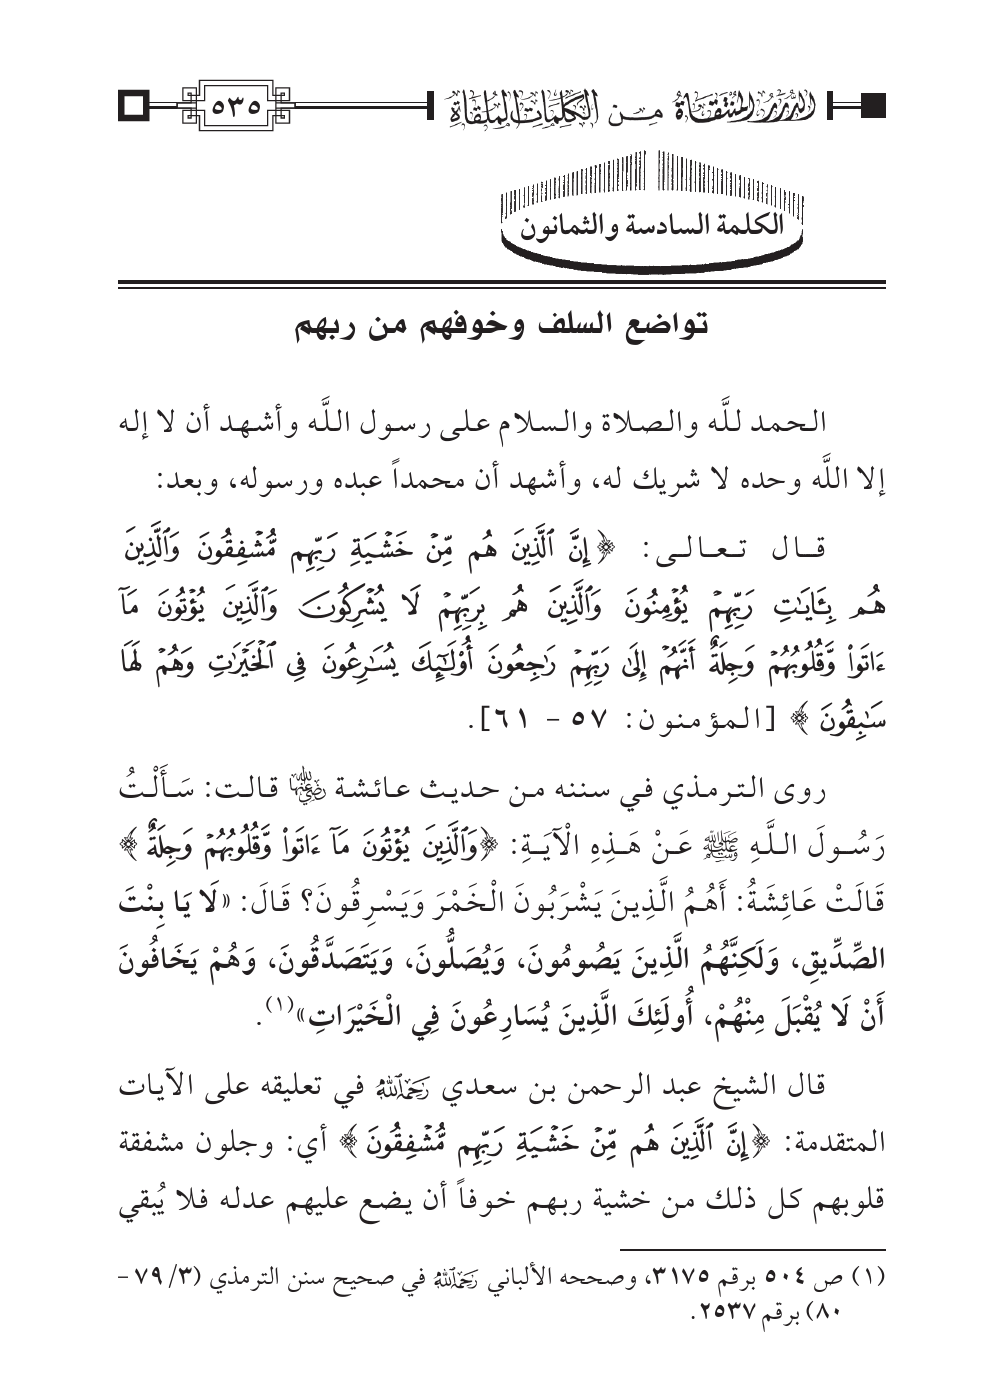 الدُّرَرُ المُنْتَقَاةُ مِنَ الكَلِمَاتِ المُلْقَاةِ
٥٣٥
الكلمة السادسة والثمانون
تواضع السلف وخوفهم من ربهم
الحمد للَّه والصلاة والسلام على رسول اللَّه وأشهد أن لا إله
إلا اللَّه وحده لا شريك له، وأشهد أن محمداً عبده ورسوله، وبعد:
قال تعالى: ﴿ إِنَّ ٱلَّذِينَ هُم مِّنۡ خَشۡيَةِ رَبِّهِم مُّشۡفِقُونَ وَٱلَّذِينَ
هُم بِـَٔايَٰتِ رَبِّهِمۡ يُؤۡمِنُونَ وَٱلَّذِينَ هُم بِرَبِّهِمۡ لَا يُشۡرِكُونَ وَٱلَّذِينَ يُؤۡتُونَ مَآ
ءَاتَواْ وَّقُلُوبُهُمۡ وَجِلَةٌ أَنَّهُمۡ إِلَىٰ رَبِّهِمۡ رَٰجِعُونَ أُوْلَٰٓئِكَ يُسَٰرِعُونَ فِي ٱلۡخَيۡرَٰتِ وَهُمۡ لَهَا
سَٰبِقُونَ ﴾ [المؤمنون: ٥٧ - ٦١].
روى الترمذي في سننه من حديث عائشة رضي الله عنها قالت: سَأَلْتُ
رَسُولَ اللَّهِ ﷺ عَنْ هَذِهِ الْآيَةِ: ﴿وَٱلَّذِينَ يُؤۡتُونَ مَآ ءَاتَواْ وَّقُلُوبُهُمۡ وَجِلَةٌ﴾
قَالَتْ عَائِشَةُ: أَهُمُ الَّذِينَ يَشْرَبُونَ الْخَمْرَ وَيَسْرِقُونَ؟ قَالَ: «لَا يَا بِنْتَ
الصِّدِّيقِ، وَلَكِنَّهُمُ الَّذِينَ يَصُومُونَ، وَيُصَلُّونَ، وَيَتَصَدَّقُونَ، وَهُمْ يَخَافُونَ
أَنْ لَا يُقْبَلَ مِنْهُمْ، أُولَئِكَ الَّذِينَ يُسَارِعُونَ فِي الْخَيْرَاتِ»(١).
قال الشيخ عبد الرحمن بن سعدي رحمه الله في تعليقه على الآيات
المتقدمة: ﴿إِنَّ ٱلَّذِينَ هُم مِّنۡ خَشۡيَةِ رَبِّهِم مُّشۡفِقُونَ ﴾ أي: وجلون مشفقة
قلوبهم كل ذلك من خشية ربهم خوفاً أن يضع عليهم عدله فلا يُبقي
(١) ص ٥٠٤ برقم ٣١٧٥، وصححه الألباني رحمه الله في صحيح سنن الترمذي (٣/ ٧٩ -
٨٠) برقم ٢٥٣٧.